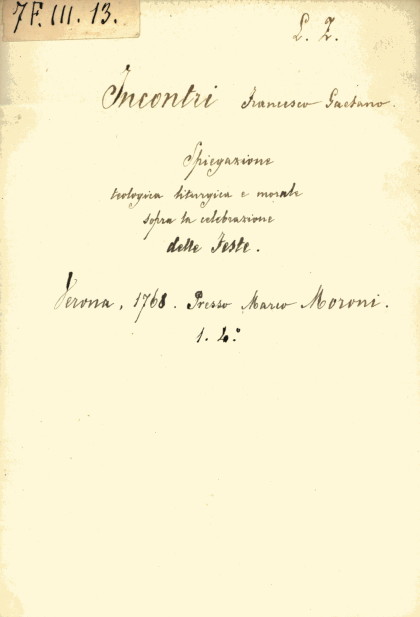 7 F. III. 13.
L. 2.
Incontri Francesco Gaetano.
Spiegazione
teologica liturgica e morale
sopra la celebrazione
delle Feste.
Verona, 1768. Presso Marco Moroni.
1. 4.º